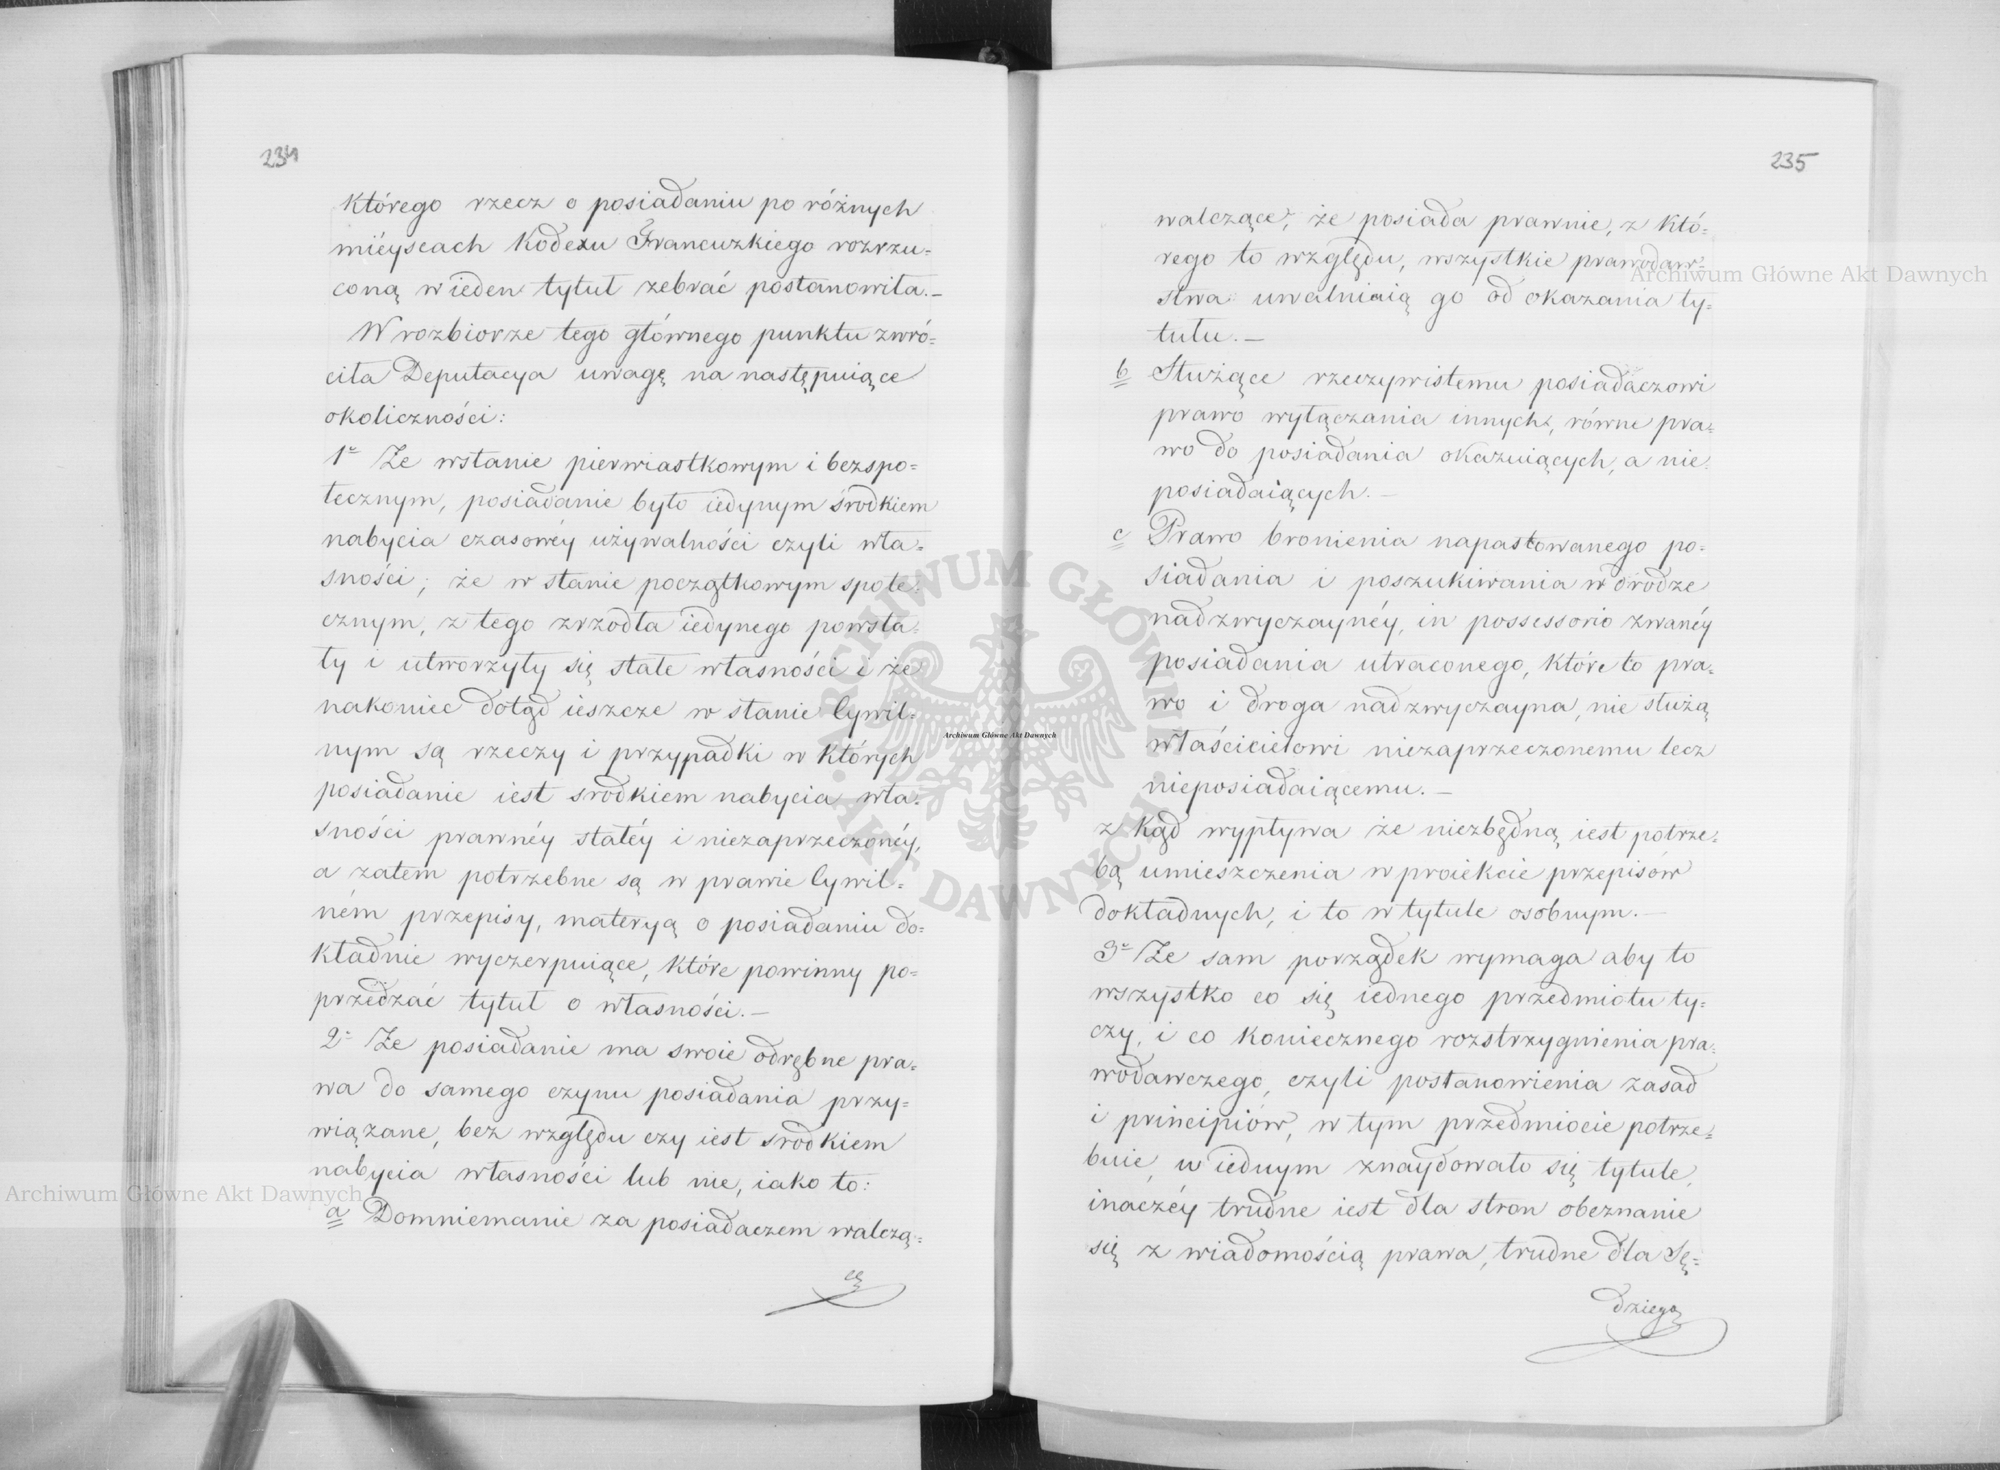 234
którego rzecz o posiadaniu po różnych
miéyscach Kodexu Francuzkiego rozrzu=
coną w ieden tytuł zebrać postanowiła.—
W rozbiorze tego głównego punktu zwró=
ciła Deputacya uwagę na następuiące
okoliczności:
1º Ze wstanie pierwiastkowym i bezspo=
łecznym, posiadanie było iedynym środkiem
nabycia czasowéy używalności czyli wła=
sności; że w stanie początkowym społe=
cznym, z tego zrzodła iedynego powsta=
ły i utworzyły się stałe własności i że
nakoniec dotąd ieszcze w stanie Cywil=
nym są rzeczy i przypadki w których
posiadanie iest srodkiem nabycia wła=
sności prawnéy stałéy i niezaprzeczonéy,
a zatem potrzebne są w prawie Cywil=
ném przepisy, materyą o posiadaniu do=
kładnie wyczerpuiące, które powinny po=
przedzać tytuł o własności.—
2º Ze posiadanie ma swoie odrębne pra=
wa do samego czynu posiadania przy=
wiązane, bez względu czy iest srodkiem
nabycia własności lub nie, iako to:
a Domniemanie za posiadaczem walczą=
cę
235
walczące, że posiada prawnie, z któ=
rego to względu, wszystkie prawodaw=
stwa uwalniaią go od okazania ty=
tułu.—
b Służące rzeczywistemu posiadaczowi
prawo wyłączania innych, równe pra=
wo do posiadania okazuiących, a nie
posiadaiących.—
c Prawo bronienia napastowanego po=
siadania i poszukiwania w drodze
nadzwyczaynéy, in possessorio zwanéy
posiadania utraconego, które to pra=
wo i droga nadzwyczayna, nie służą
właścicielowi niezaprzeczonemu lecz
nieposiadaiącemu.—
z kąd wypływa że niezbędną iest potrze=
bą umieszczenia w proiekcie przepisów
dokładnych, i to w tytule osobnym.—
3º Ze sam porządek wymaga aby to
wszystko co się iednego przedmiotu ty=
czy, i co koniecznego rozstrzygnienia pra=
wodawczego, czyli postanowienia zasad
i principiów, w tym przedmiocie potrze=
buie, w iednym znaydowało się tytule,
inaczéy trudne iest dla stron obeznanie
się z wiadomością prawa, trudne dla Sę=
dziego
Archiwum Główne Akt Dawnych
Archiwum Główne Akt Dawnych
Archiwum Główne Akt Dawnych
ARCHIWUM GŁÓWNE · AKT DAWNYCH ·